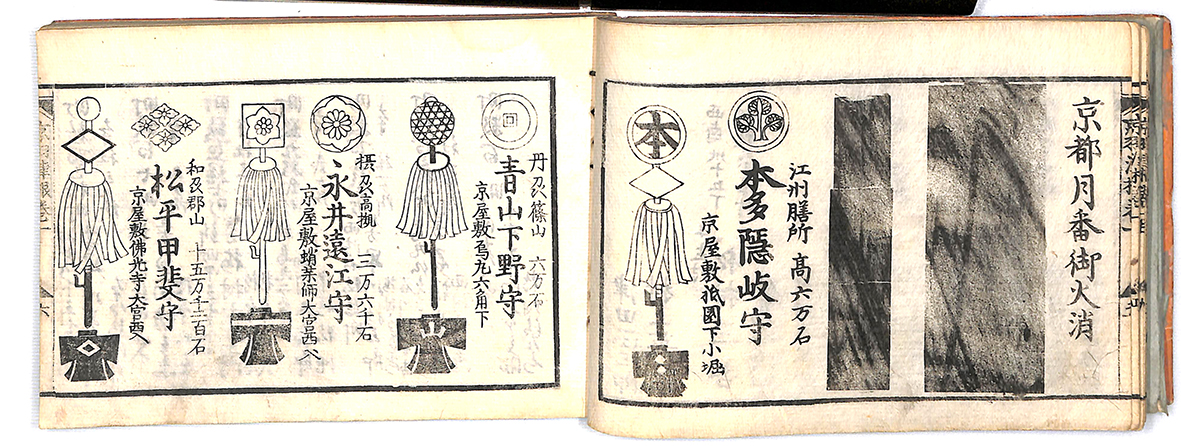 京都月番御火消
江州膳所 高六万石
本多隠岐守
京屋敷祇園下小堀
本
丹刕篠山 六万石
青山下野守
京屋敷烏丸六角下
摂刕高槻 三万六千石
永井遠江守
京屋敷蛸薬師大宮西入
和刕郡山 十五万千二百石
松平甲斐守
京屋敷佛光寺大宮西入